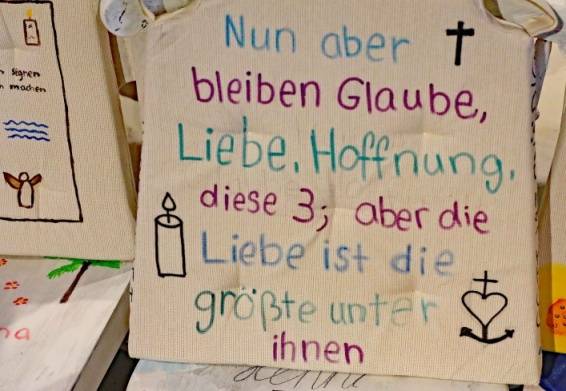 Nun aber
bleiben Glaube,
Liebe, Hoffnung,
diese 3; aber die
Liebe ist die
größte unter
ihnen
segnen
machen